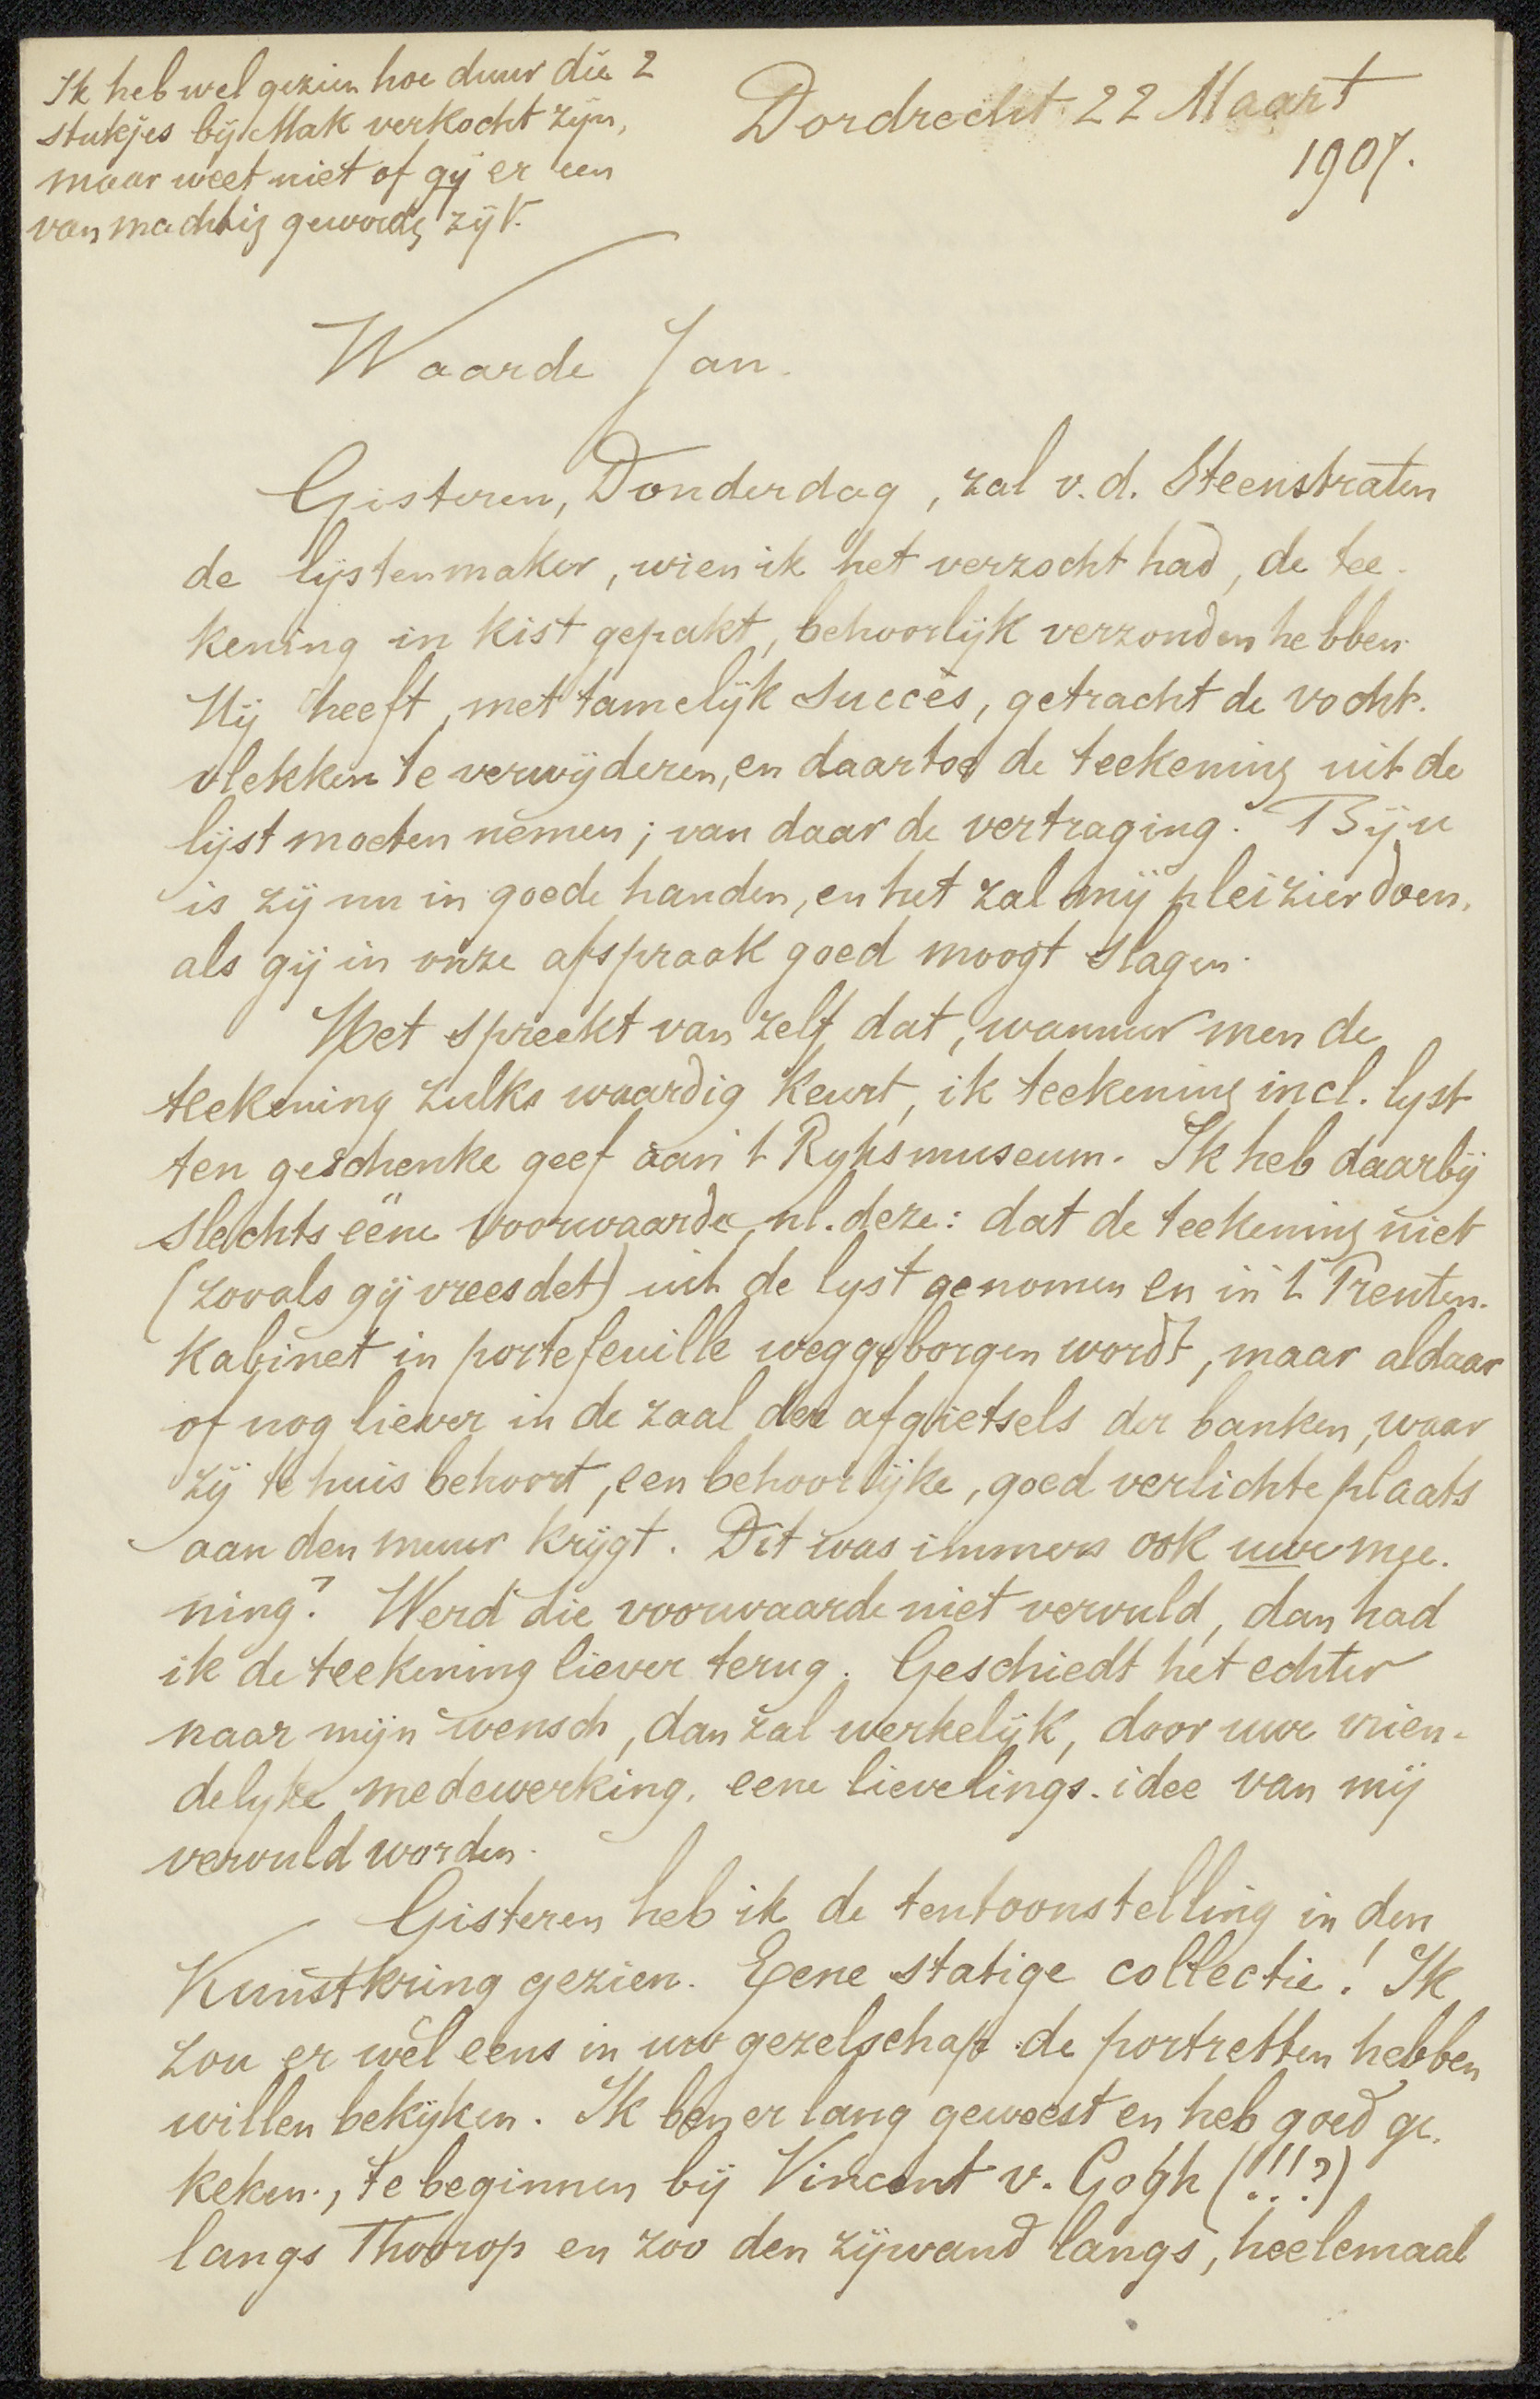 Ik heb wel gezien hoe duur die 2
stukjes bij Mak verkocht zijn,
maar weet niet of gij er een
van machtig geworden zijt.
Dordrecht 22 Maart
1907.
Waarde Jan.
Gisteren, Donderdag, zal v.d. Steenstraten
de lijstenmaker, wien ik het verzocht had, de tee-
kening in kist gepakt, behoorlijk verzonden hebben.
Hij heeft, met tamelijk succès, getracht de vocht-
vlekken te verwijderen, en daartoe de teekening uit de
lijst moeten nemen; van daar de vertraging. Bij u
is zij nu in goede handen, en het zal mij pleizier doen,
als gij in onze afspraak goed moogt slagen.
Het spreekt van zelf dat, wanneer men de
teekening zulks waardig keurt, ik teekening incl. lyst
ten geschenke geef aan 't Ryksmuseum. Ik heb daarbij
slechts eene voorwaarde, nl. deze: dat de teekening niet
(zooals gij vreesdet) uit de lyst genomen en in 't Prenten-
kabinet in portefeuille weggeborgen wordt, maar aldaar
of nog liever in de zaal der afgietsels der banken, waar
zij te huis behoort, een behoorlijke, goed verlichte plaats
aan den muur krijgt. Dit was immers ook uwe mee-
ning? Werd die voorwaarde niet vervuld, dan had
ik de teekening liever terug. Geschiedt het echter
naar mijn wensch, dan zal werkelijk, door uwe vrien-
delyke medewerking, eene lievelings-idee van mij
vervuld worden.
Gisteren heb ik de tentoonstelling in den
Kunstkring gezien. Eene statige collectie! Ik
zou er wèl eens in uw gezelschap de portretten hebben
willen bekijken. Ik ben er lang geweest en heb goed ge-
keken, te beginnen bij Vincent v. Gogh (!!!?)
langs Thoorop en zoo den zijwand langs, heelemaal